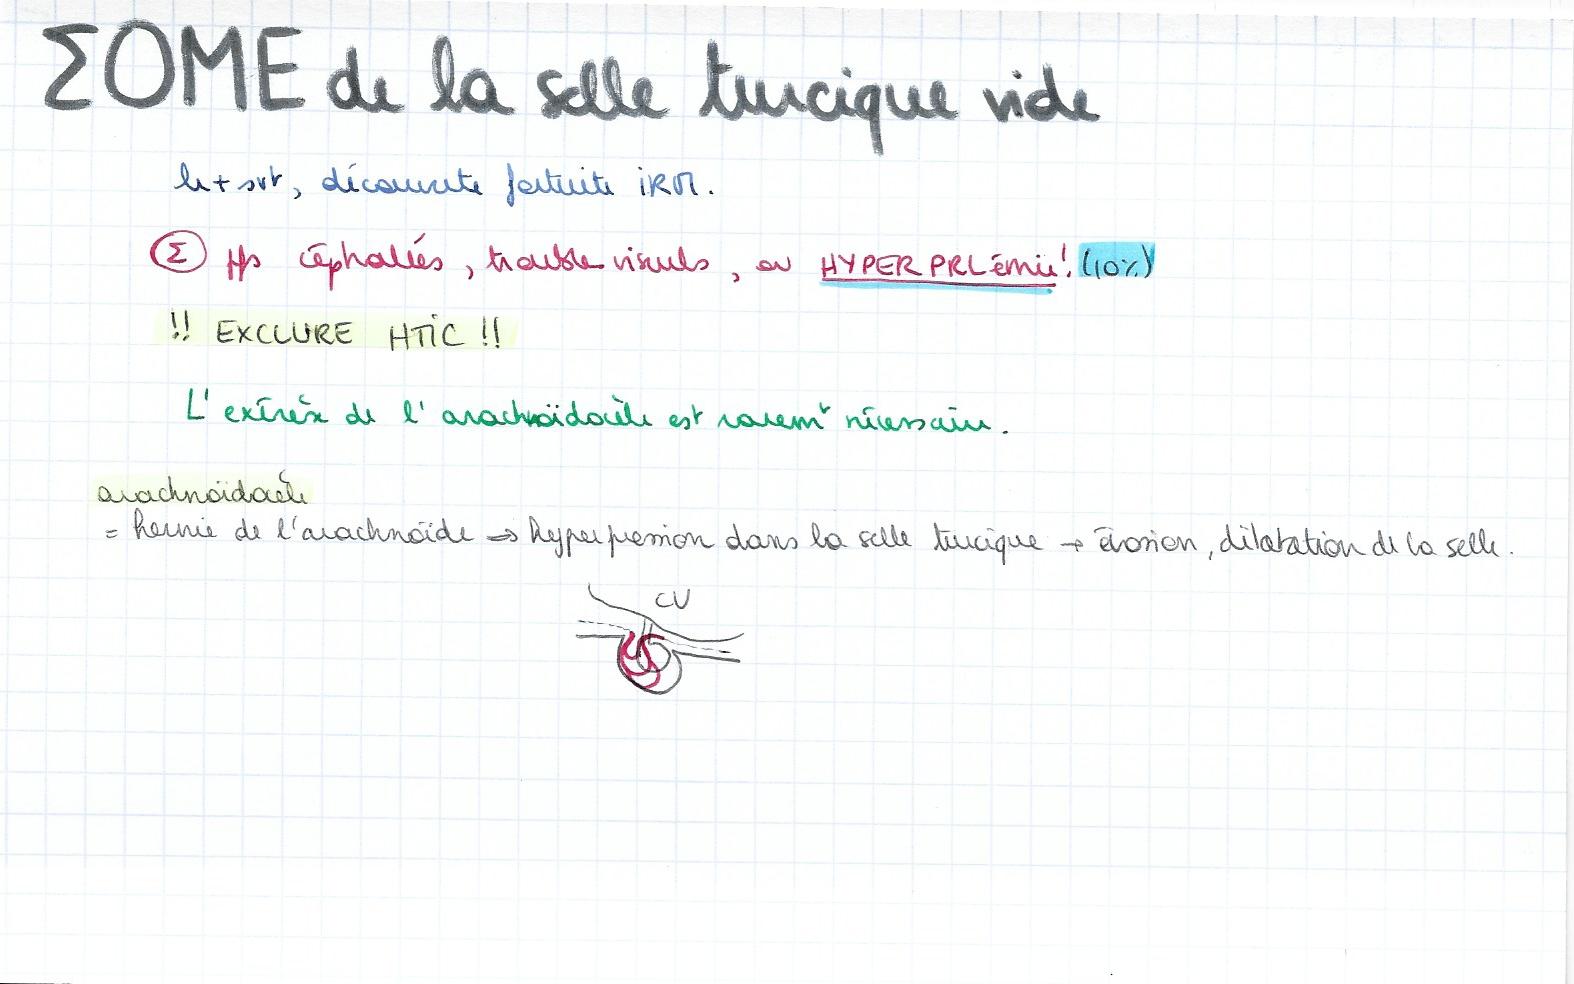 ΣOME de la selle turcique vide
le + svt, découverte fortuite iRM.
Σ céphalées, trouble visuels, ou HYPER PRLémie! (10%)
!! EXCLURE HTiC !!
L'exérèse de l'arachnoïdocèle est raremt nécessaire.
arachnoïdocèle
= hernie de l'arachnoïde ⇒ hyperpression dans la selle turcique → érosion, dilatation de la selle.
CV